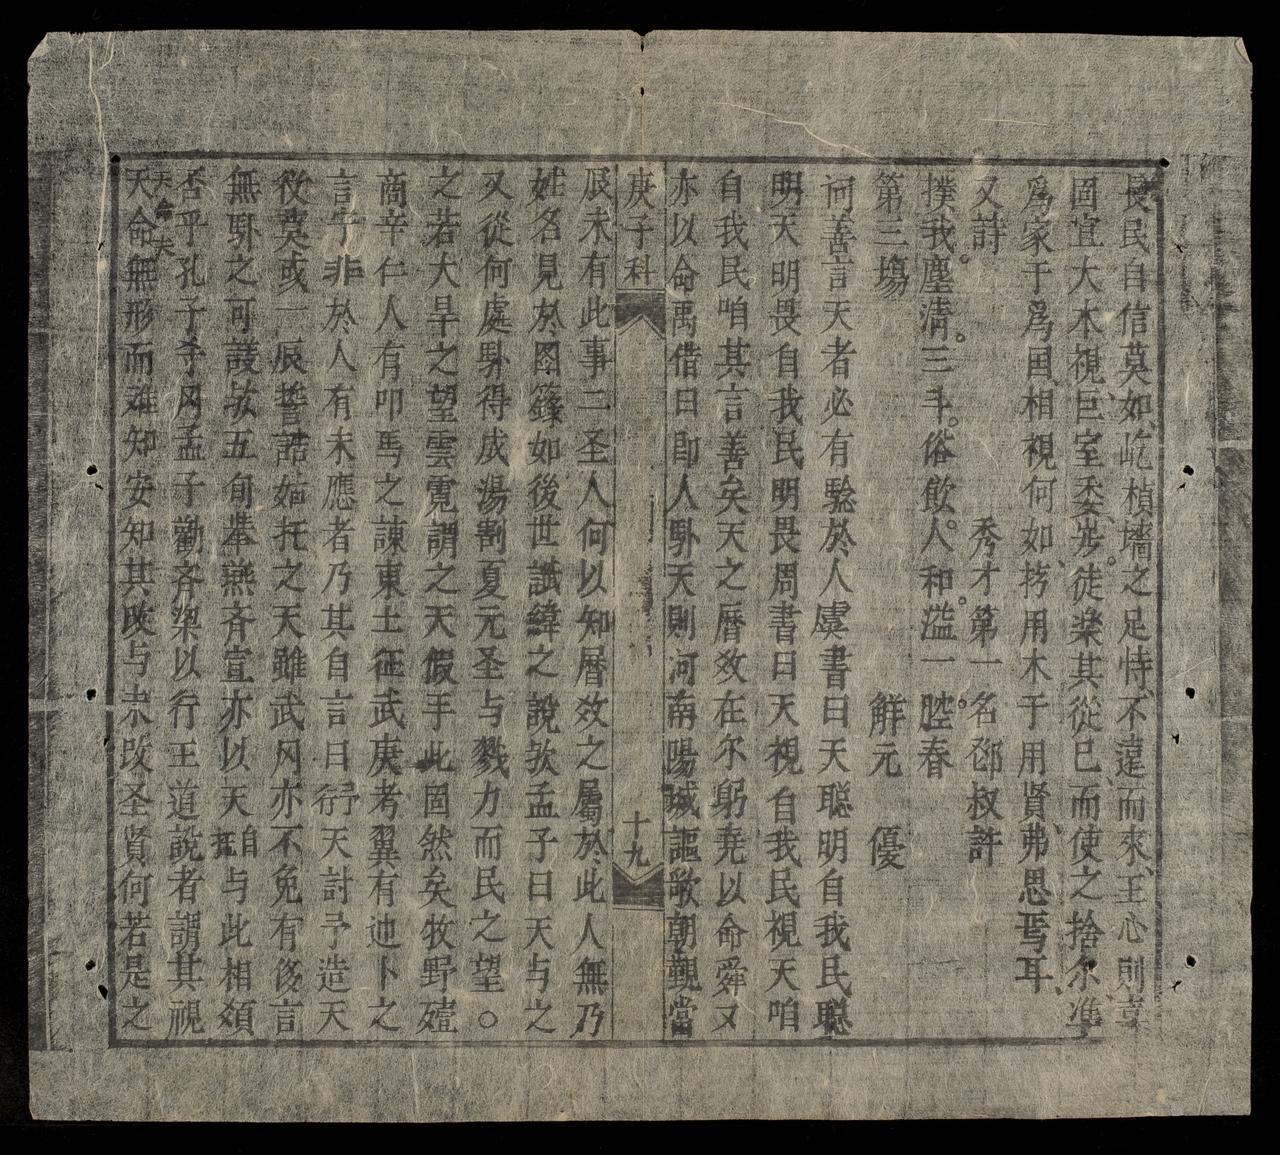 長民自信莫如屹楨墻之足恃不遠而來王心則
固宜大木視巨室委步徒楽其從已而使之捨尔准
爲家于爲国相視何如抡用木于用賢弗思焉耳
又詩　秀才第一名　叔許
撲我塵清三斗俗飲人和溢一腔春
第三塲　解元　優
问善言天者必有騐於人虞書曰天聪明自我民聪
明天明畏自我民明畏周書曰天視自我民視天咱
自我民咱其言善矣天之曆效在尔躬尭以命舜又
亦以命禹借曰即人卧天則河南陽城謳歌朝觐當
庚子科　十九
辰未有此事二圣人何以知曆效之屬於此人無乃
姓名見於图籙如後世讖緯之說欤孟子曰天与之
又從何處卧得成湯割夏元圣与戮力而民之望○
之若大旱之望雲霓謂之天假手此固然矣牧野殪
商辛仁人有叩馬之諫東土征武庚考翼有迪卜之
言宁非於人有未應者乃其自言曰予行天討予造天
役莫或一辰誓誥姑托之天雖武冈亦不免有侈言
無卧之可諼故五旬举燕斉宣亦以天自托与此相類
否乎孔子予冈孟子勸斉梁以行王道說者謂其視
天命夫
天命無形而难知安知其改与未改圣賢何若是之